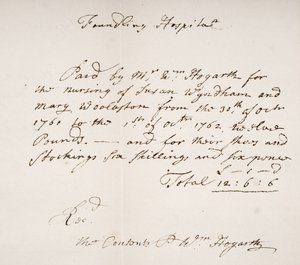 Foundling Hospital
Paid by Mr. Wm. Hogarth for
the nursing of Susan Wyndham and
Mary Woolaston from the 30th of Octr
1760 to the 1st of Octr 1762 twelve
Pounds. — and for their shoes and
Stockings Six Shillings and Sixpence
£ - s - d
Total 12 : 6 : 6
Recd
the Contents P Wm. Hogarth